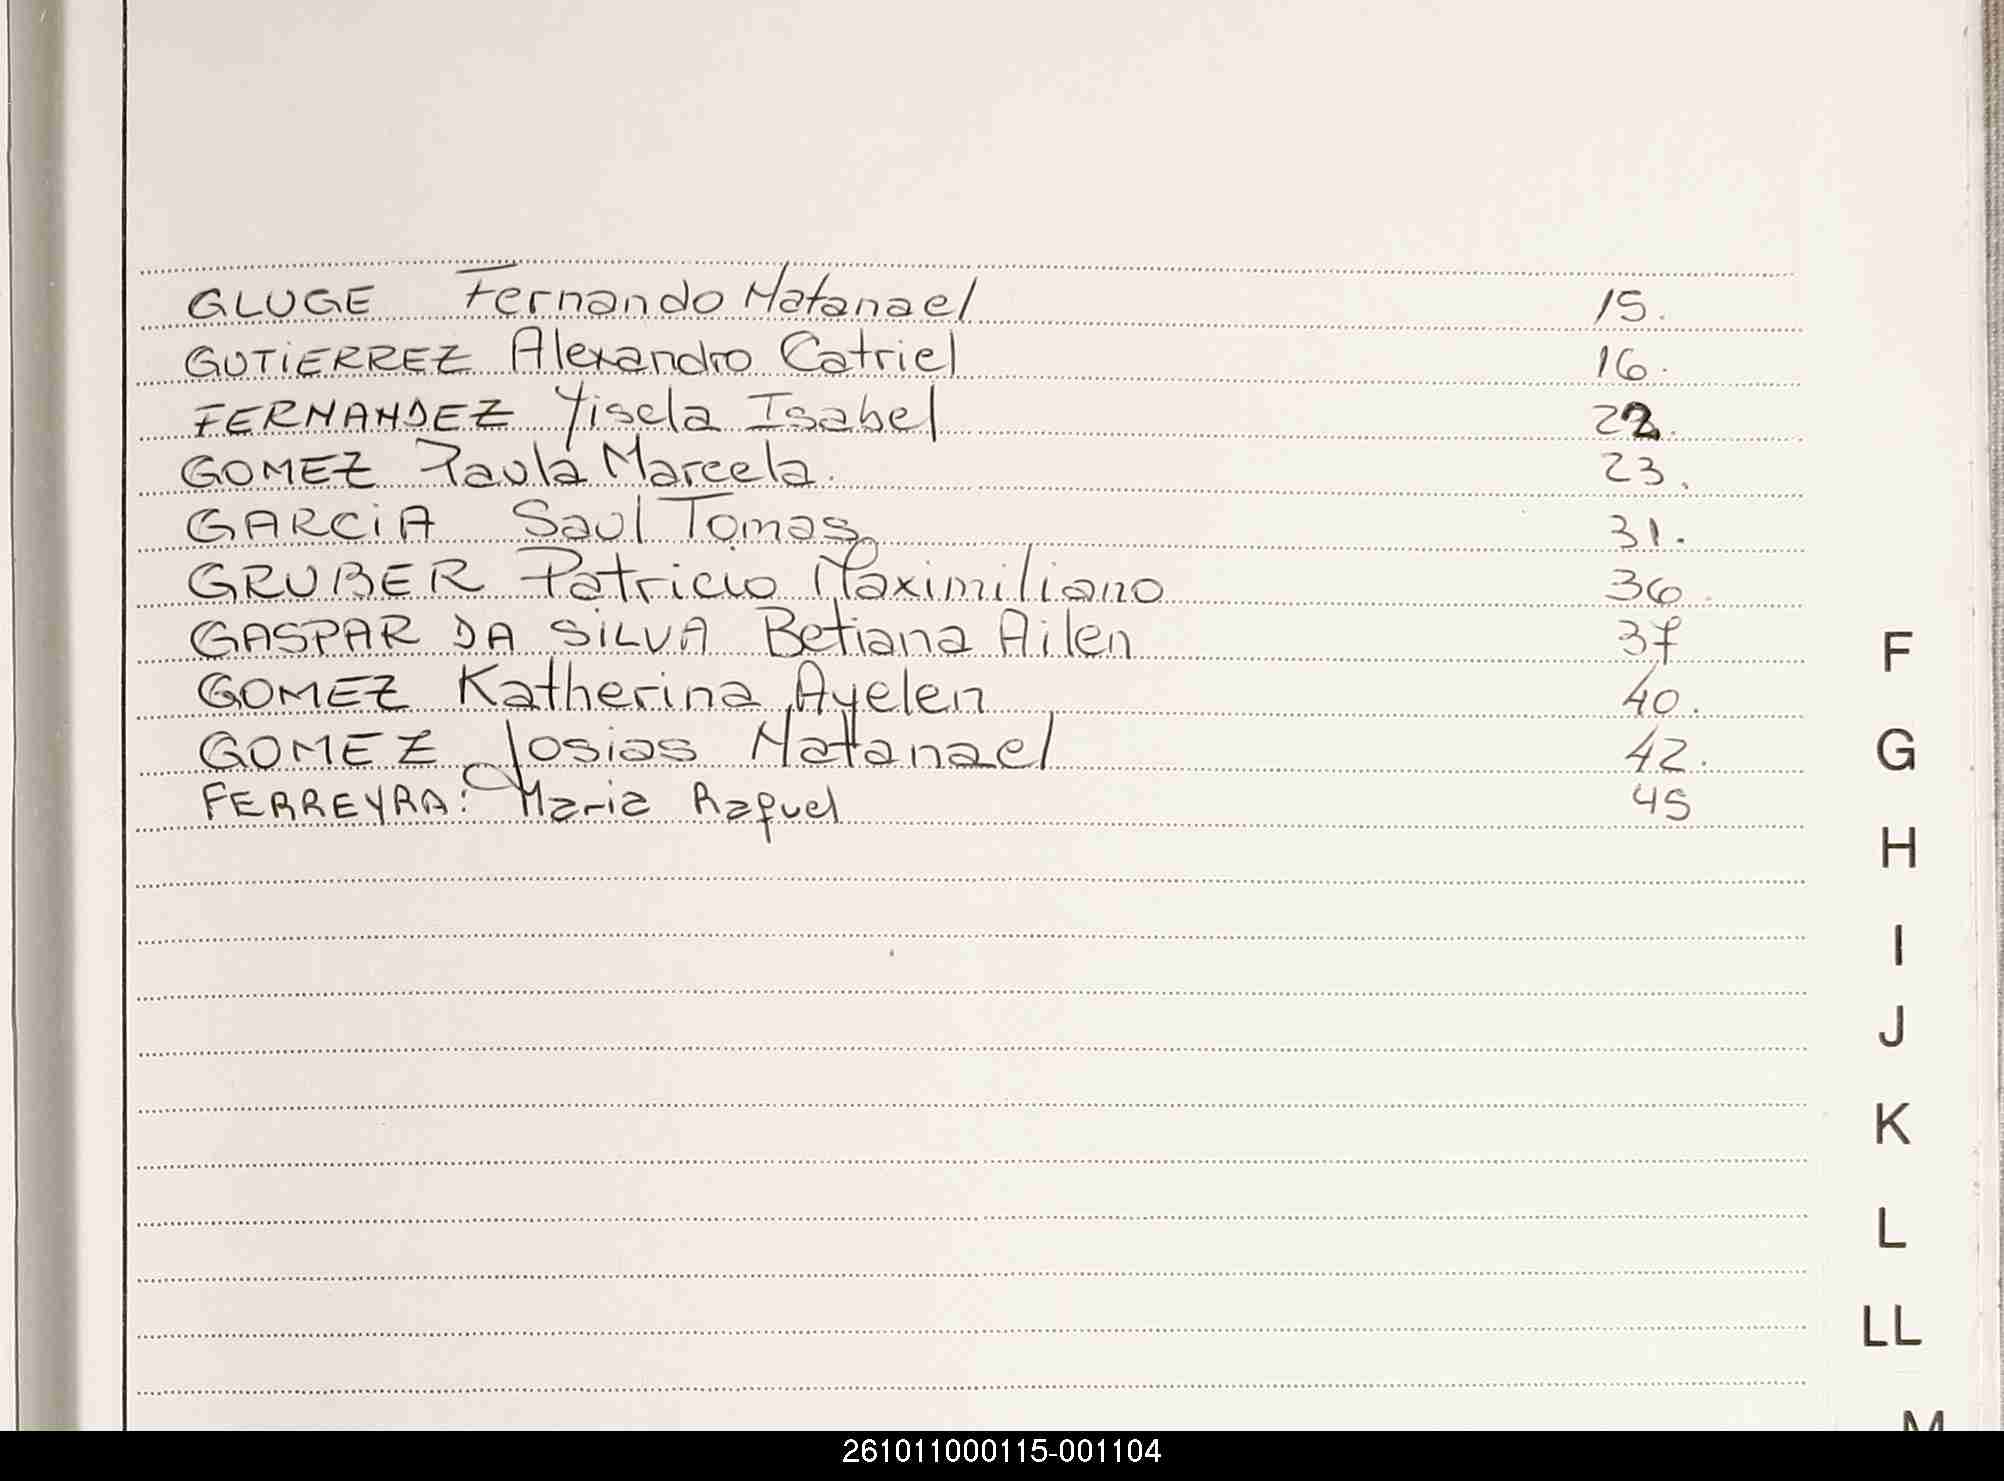 GLUGE Fernando Natanael 15.
GUTIERREZ Alexandro Catriel 16.
FERNANDEZ Yisela Isabel 22.
GOMEZ Paula Marcela. 23.
GARCIA Saul Tomas 31.
GRUBER Patricio Maximiliano 36.
GASPAR DA SILVA Betiana Ailen 37
GOMEZ Katherina Ayelen 40.
GOMEZ Josias Natanael 42.
FERREYRA: Maria Raquel 45
F
G
H
I
J
K
L
LL
M
261011000115-001104